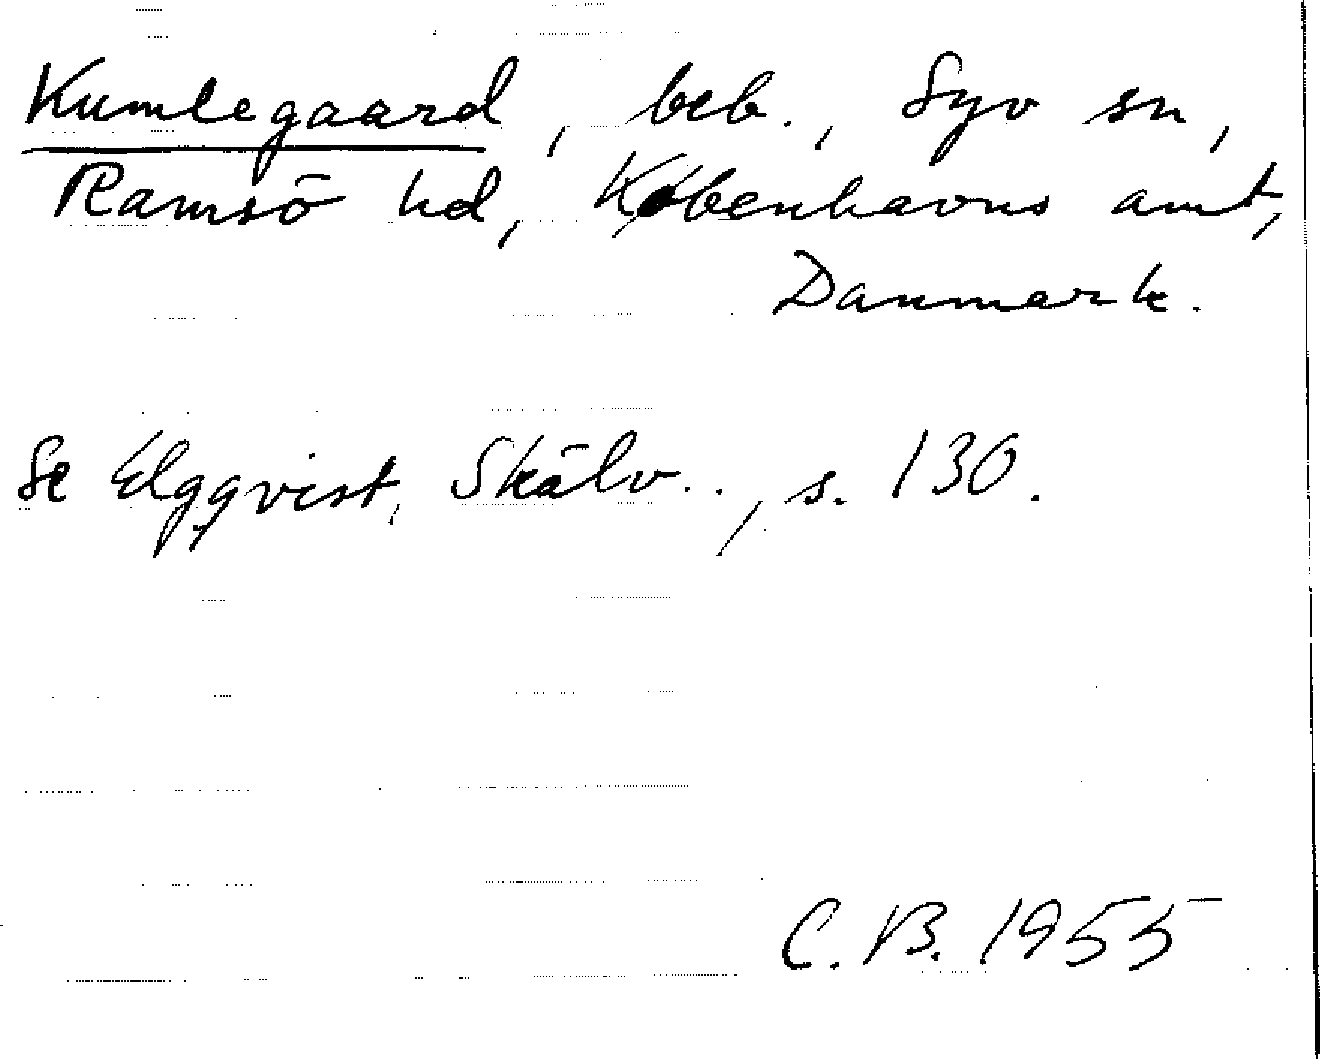 Kumlegaard, beb., Syv sn,
Ramsö hd, Københavns amt,
Danmark.
Se Elgqvist, Skälv.., s. 130.
C.B. 1955